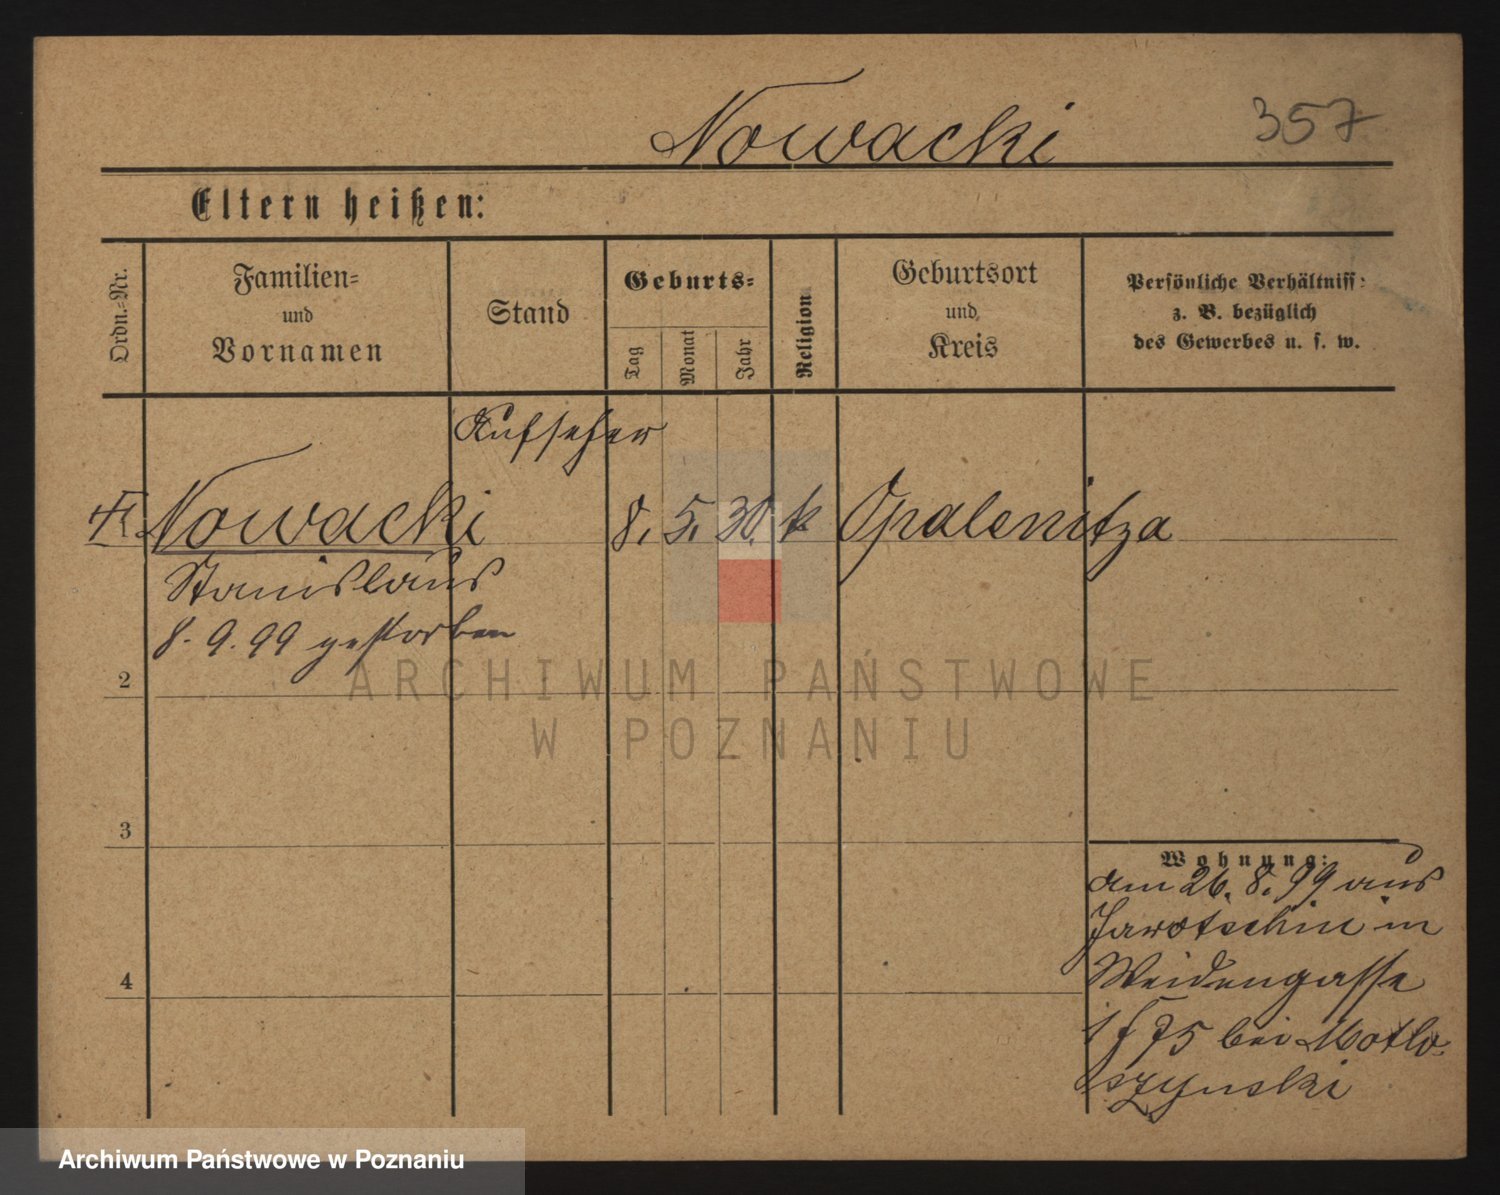 Nowacki
357
Eltern heißen:
Ordn.-Nr.
Familien-
und
Vornamen
Stand
Geburts-
Tag
Monat
Jahr
Religion
Geburtsort
und
Kreis
Persönliche Verhältniss-
z. B. bezüglich
des Gewerbes u. s. w.
Aufseher
1 Nowacki 8. 5. 30. k Opalenitza
Stanislaus
8. 9. 99 gestorben
2
3
4
Wohnung:
am 26. 8. 99 aus
Jarotschin in
Weidengasse
75 bei Motlo-
szynski
ARCHIWUM PAŃSTWOWE
W POZNANIU
Archiwum Państwowe w Poznaniu